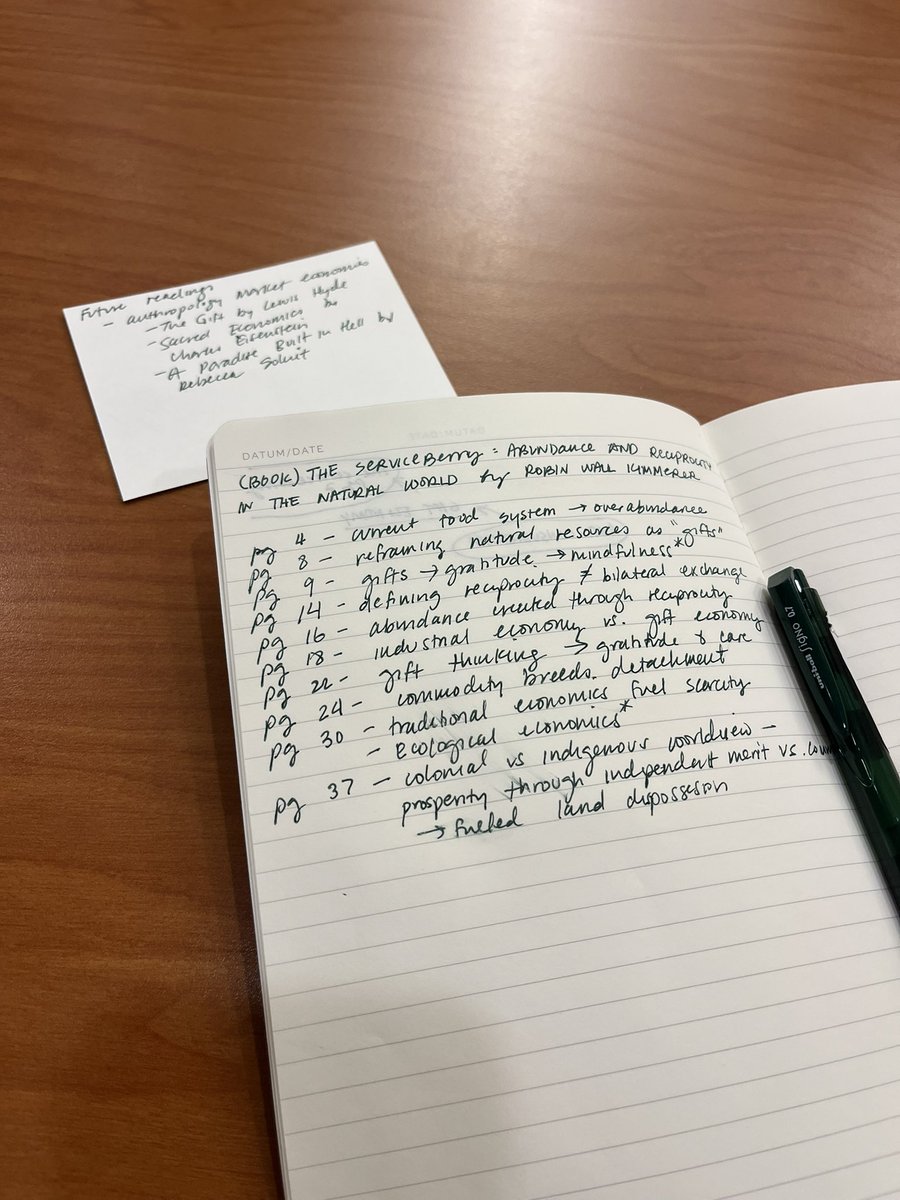 Future readings
- anthropology market economics
- The Gift by Lewis Hyde
- Sacred Economics by
Charles Eisenstein
- A Paradise Built in Hell by
Rebecca Solnit
DATUM/DATE
(BOOK) THE SERVICEBERRY: ABUNDANCE AND RECIPROCITY
IN THE NATURAL WORLD by ROBIN WALL KIMMERER
pg 4 - current food system → overabundance
pg 8 - reframing natural resources as "gifts"
pg 9 - gifts → gratitude → mindfulness*
pg 14 - defining reciprocity ≠ bilateral exchange
pg 16 - abundance created through reciprocity
pg 18 - industrial economy vs. gift economy
pg 22 - gift thinking → gratitude & care
pg 24 - commodity breeds detachment
pg 30 - traditional economics fuel scarcity
- ecological economics*
pg 37 - colonial vs indigenous worldview -
prosperity through independent merit vs.
→ fueled land dispossession
uniball SIGNO 0.7